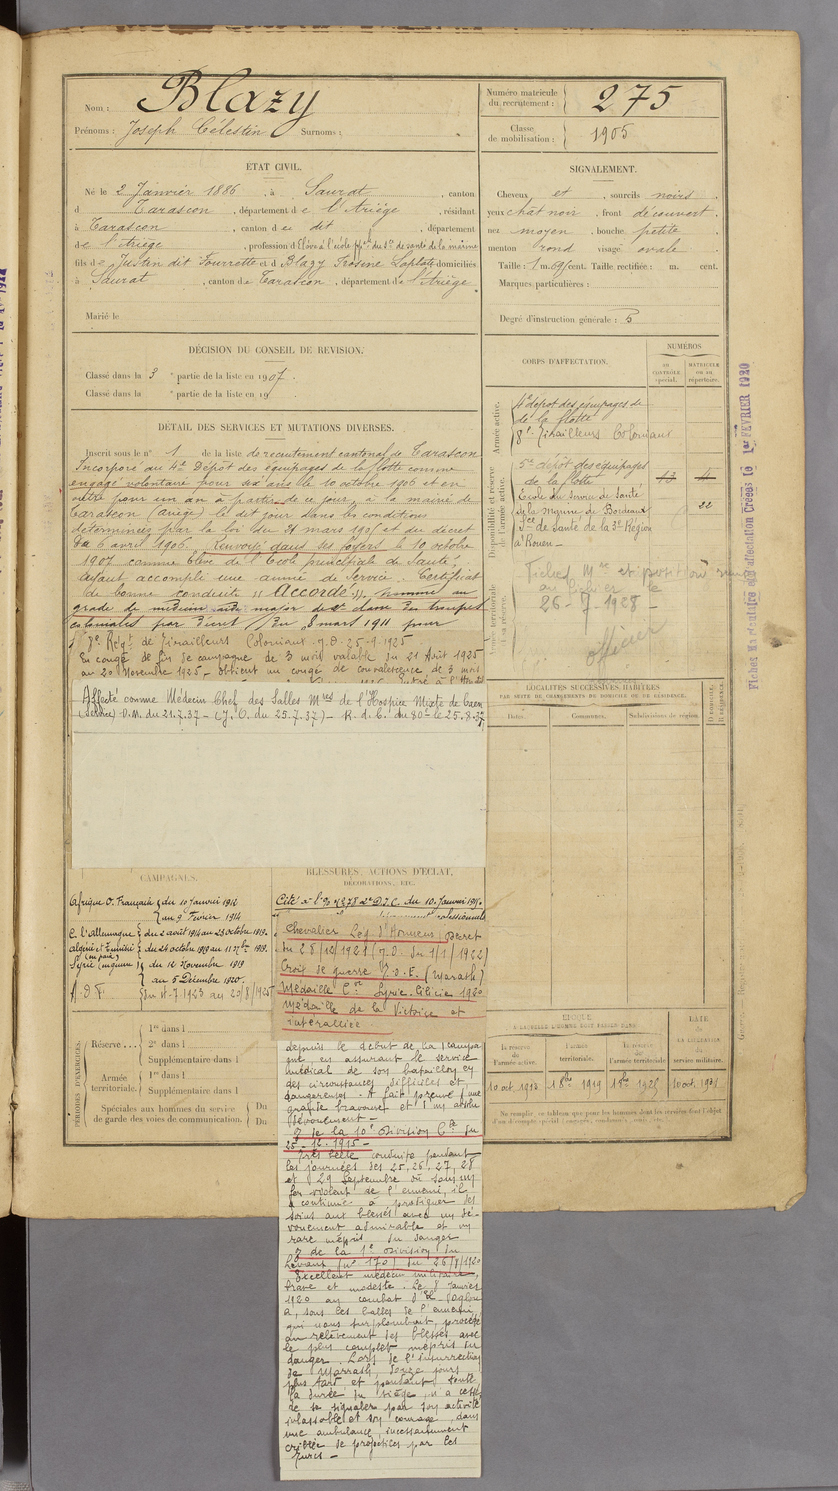 Nom : Blazy
Prénoms : Joseph Célestin Surnoms :
Numéro matricule du recrutement : 275
Classe de mobilisation : 1905
ÉTAT CIVIL.
Né le 2 Janvier 1886, à Saurat, canton
d Tarascon, département de l'Ariège, résidant
à Tarascon, canton de dit, département
de l'Ariège, profession d'Elève à l'école ppale du Sce de santé de la marine
fils de Justin dit Fourrette et d Blazy Frosine Laplote domiciliés
à Saurat, canton de Tarascon, département de l'Ariège
Marié le
SIGNALEMENT.
Cheveux et, sourcils noirs,
yeux chât noir, front découvert,
nez moyen, bouche petite,
menton rond visage ovale
Taille : 1 m. 69 cent. Taille rectifiée : m. cent.
Marques particulières :
Degré d'instruction générale : 5
DÉCISION DU CONSEIL DE REVISION.
Classé dans la 3e partie de la liste en 1907.
Classé dans la e partie de la liste en 19
DÉTAIL DES SERVICES ET MUTATIONS DIVERSES.
Inscrit sous le n° 1 de la liste de recrutement cantonal de Tarascon
Incorporé au 4e Dépôt des équipages de la flotte comme
engagé volontaire pour six ans le 10 octobre 1906 et en
outre pour un an à partir de ce jour, à la mairie de
Tarascon (Ariège) le dit jour dans les conditions
déterminées par la loi du 21 mars 1905 et du décret
du 6 avril 1906. Renvoyé dans ses foyers le 10 octobre
1907 comme élève de l'Ecole principale de Santé
ayant accompli une année de service. Certificat
de bonne conduite "Accordé". nommé au
grade de médecin aide major de 2e classe des troupes
coloniales par Décret du 8 mars 1911 pour
8e Régt de Tirailleurs Coloniaux J.O. 25-1-1925
En congé de fin de campagne de 3 mois valable du 21 Août 1925
au 20 Novembre 1925 - obtient un congé de convalescence de 3 mois
Affecté comme Médecin Chef des Salles Mres de l'Hospice Mixte de Caen
(Service) D.M. du 21.7.37 - (J.O. du 25.7.37) - R. d. C. du 80e le 25.8.37
CORPS D'AFFECTATION.
NUMÉROS
AU CONTRÔLE spécial.
MATRICULE OU AU répertoire.
Armée active.
4e dépôt des équipages de
de la flotte
8e Tirailleurs Coloniaux
Disponibilité et réserve de l'armée active.
5e dépôt des équipages
de la flotte 13 4
Ecole du Service de Santé
de la Marine de Bordeaux 22
Sce de Santé de la 3e Région
à Rouen -
Armée territoriale et sa réserve.
26-7-1928 -
officier
Fiches Matricules et d'affectation Créées le 1er FÉVRIER 1920
LOCALITÉS SUCCESSIVES HABITÉES
PAR SUITE DE CHANGEMENTS DE DOMICILE OU DE RÉSIDENCE.
Dates. Communes. Subdivisions de région. D DOMICILE. R RÉSIDENCE.
CAMPAGNES.
Afrique O. Française { du 10 Janvier 1912
au 9 Fevrier 1914
C. l'allemagne { du 2 août 1914 au 23 octobre 1919.
Algérie et Tunisie { du 24 octobre 1919 au 11 9bre 1919.
Syrie (en guerre) { du 12 Novembre 1919
au 5 Décembre 1920.
A.O.F. du 11-7 1923 au 20/8/1925
BLESSURES, ACTIONS D'ÉCLAT,
DÉCORATIONS, ETC.
Cité à l'O. n° 278 2e D.I.C. du 10. Janvier 1915.
Chevalier Leg. d'Honneur (Décret
du 28/12/1921 (J.O. du 1/1/1922)
Croix de guerre T.O.E. (Marash)
Médaille Cve Syrie-Cilicie 1920
Médaille de la Victoire et
interalliée
depuis le début de la campa
gne, en assurant le service
médical de son bataillon en
des circonstances difficiles et
dangereuses. A fait preuve d'une
grande bravoure et d'un absolu
dévouement -
O de la 10e Division Cle du
25-12-1915 -
Très belle conduite pendant
les journées des 25, 26, 27, 28
et 29 Septembre où sous un
feu violent de l'ennemi, il
a continué à prodiguer des
soins aux blessés avec un dé-
vouement admirable et un
rare mépris du danger
O de la 1e Division du
Levant (n° 170) du 26/8/1920
Excellent médecin militaire,
brave et modeste. Le 8 Janvier
1920 au combat d'El-Oglou
a, sous les balles de l'ennemi,
qui nous surplombait, procédé
au relèvement des blessés avec
le plus complet mépris du
danger. Lors de l'insurrection
de Marrash, douze jours
plus tard et pendant toute
la durée du siège, n'a cessé
de se signaler par son activité
inlassable et son courage, dans
une ambulance, incessamment
criblée de projectiles par les
Turcs -
PÉRIODES D'EXERCICES.
Réserve ... { 1re dans l
2e dans l
Supplémentaire dans l
Armée territoriale. { 1re dans l
Supplémentaire dans l
Spéciales aux hommes du service
de garde des voies de communication. { Du
Du
ÉPOQUE
À LAQUELLE L'HOMME DOIT PASSER DANS
la réserve de l'armée active.
l'armée territoriale.
la réserve de l'armée territoriale
DATE
DE LA LIBÉRATION
du service militaire.
10 oct. 1913 1 8bre 1919 1 8bre 1925 10 oct. 1931
Ne remplir ce tableau que pour les hommes dont les services font l'objet
d'un décompte spécial